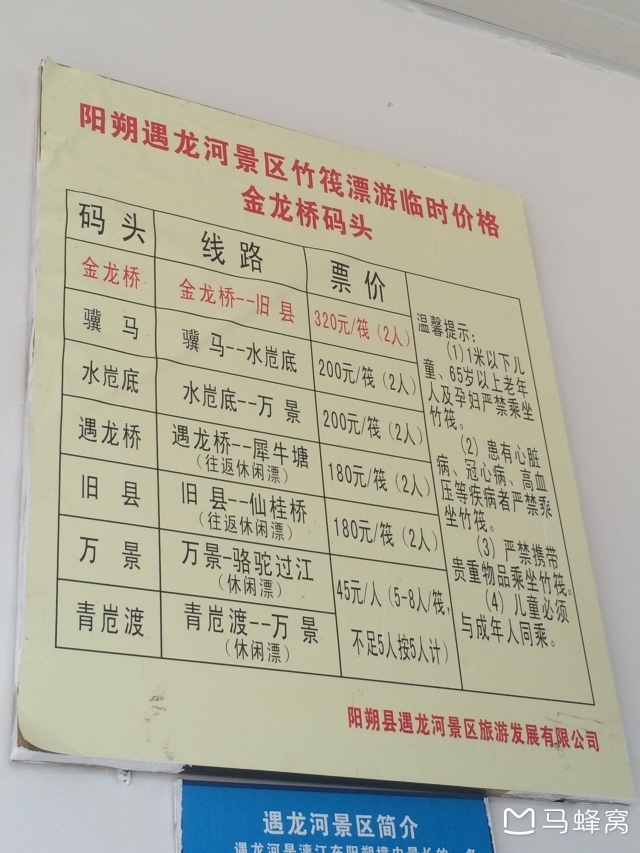 阳朔遇龙河景区竹筏漂游临时价格
金龙桥码头
码头 线路 票价
金龙桥 金龙桥--旧县 320元/筏(2人)
骥马 骥马--水岜底 200元/筏(2人)
水岜底 水岜底--万景 200元/筏(2人)
遇龙桥 遇龙桥--犀牛塘 180元/筏(2人)
(往返休闲漂)
旧县 旧县--仙桂桥 180元/筏(2人)
(往返休闲漂)
万景 万景-骆驼过江
(休闲漂)
青岜渡 青岜渡--万景
(休闲漂)
45元/人(5-8人/筏,
不足5人按5人计)
温馨提示:
(1)1米以下儿
童、65岁以上老年
人及孕妇严禁乘坐
竹筏。
(2)患有心脏
病、冠心病、高血
压等疾病者严禁乘
坐竹筏。
(3)严禁携带
贵重物品乘坐竹筏。
(4)儿童必须
与成年人同乘。
阳朔县遇龙河景区旅游发展有限公司
遇龙河景区简介
遇龙河是漓江在阳朔境内最长的一条
马蜂窝